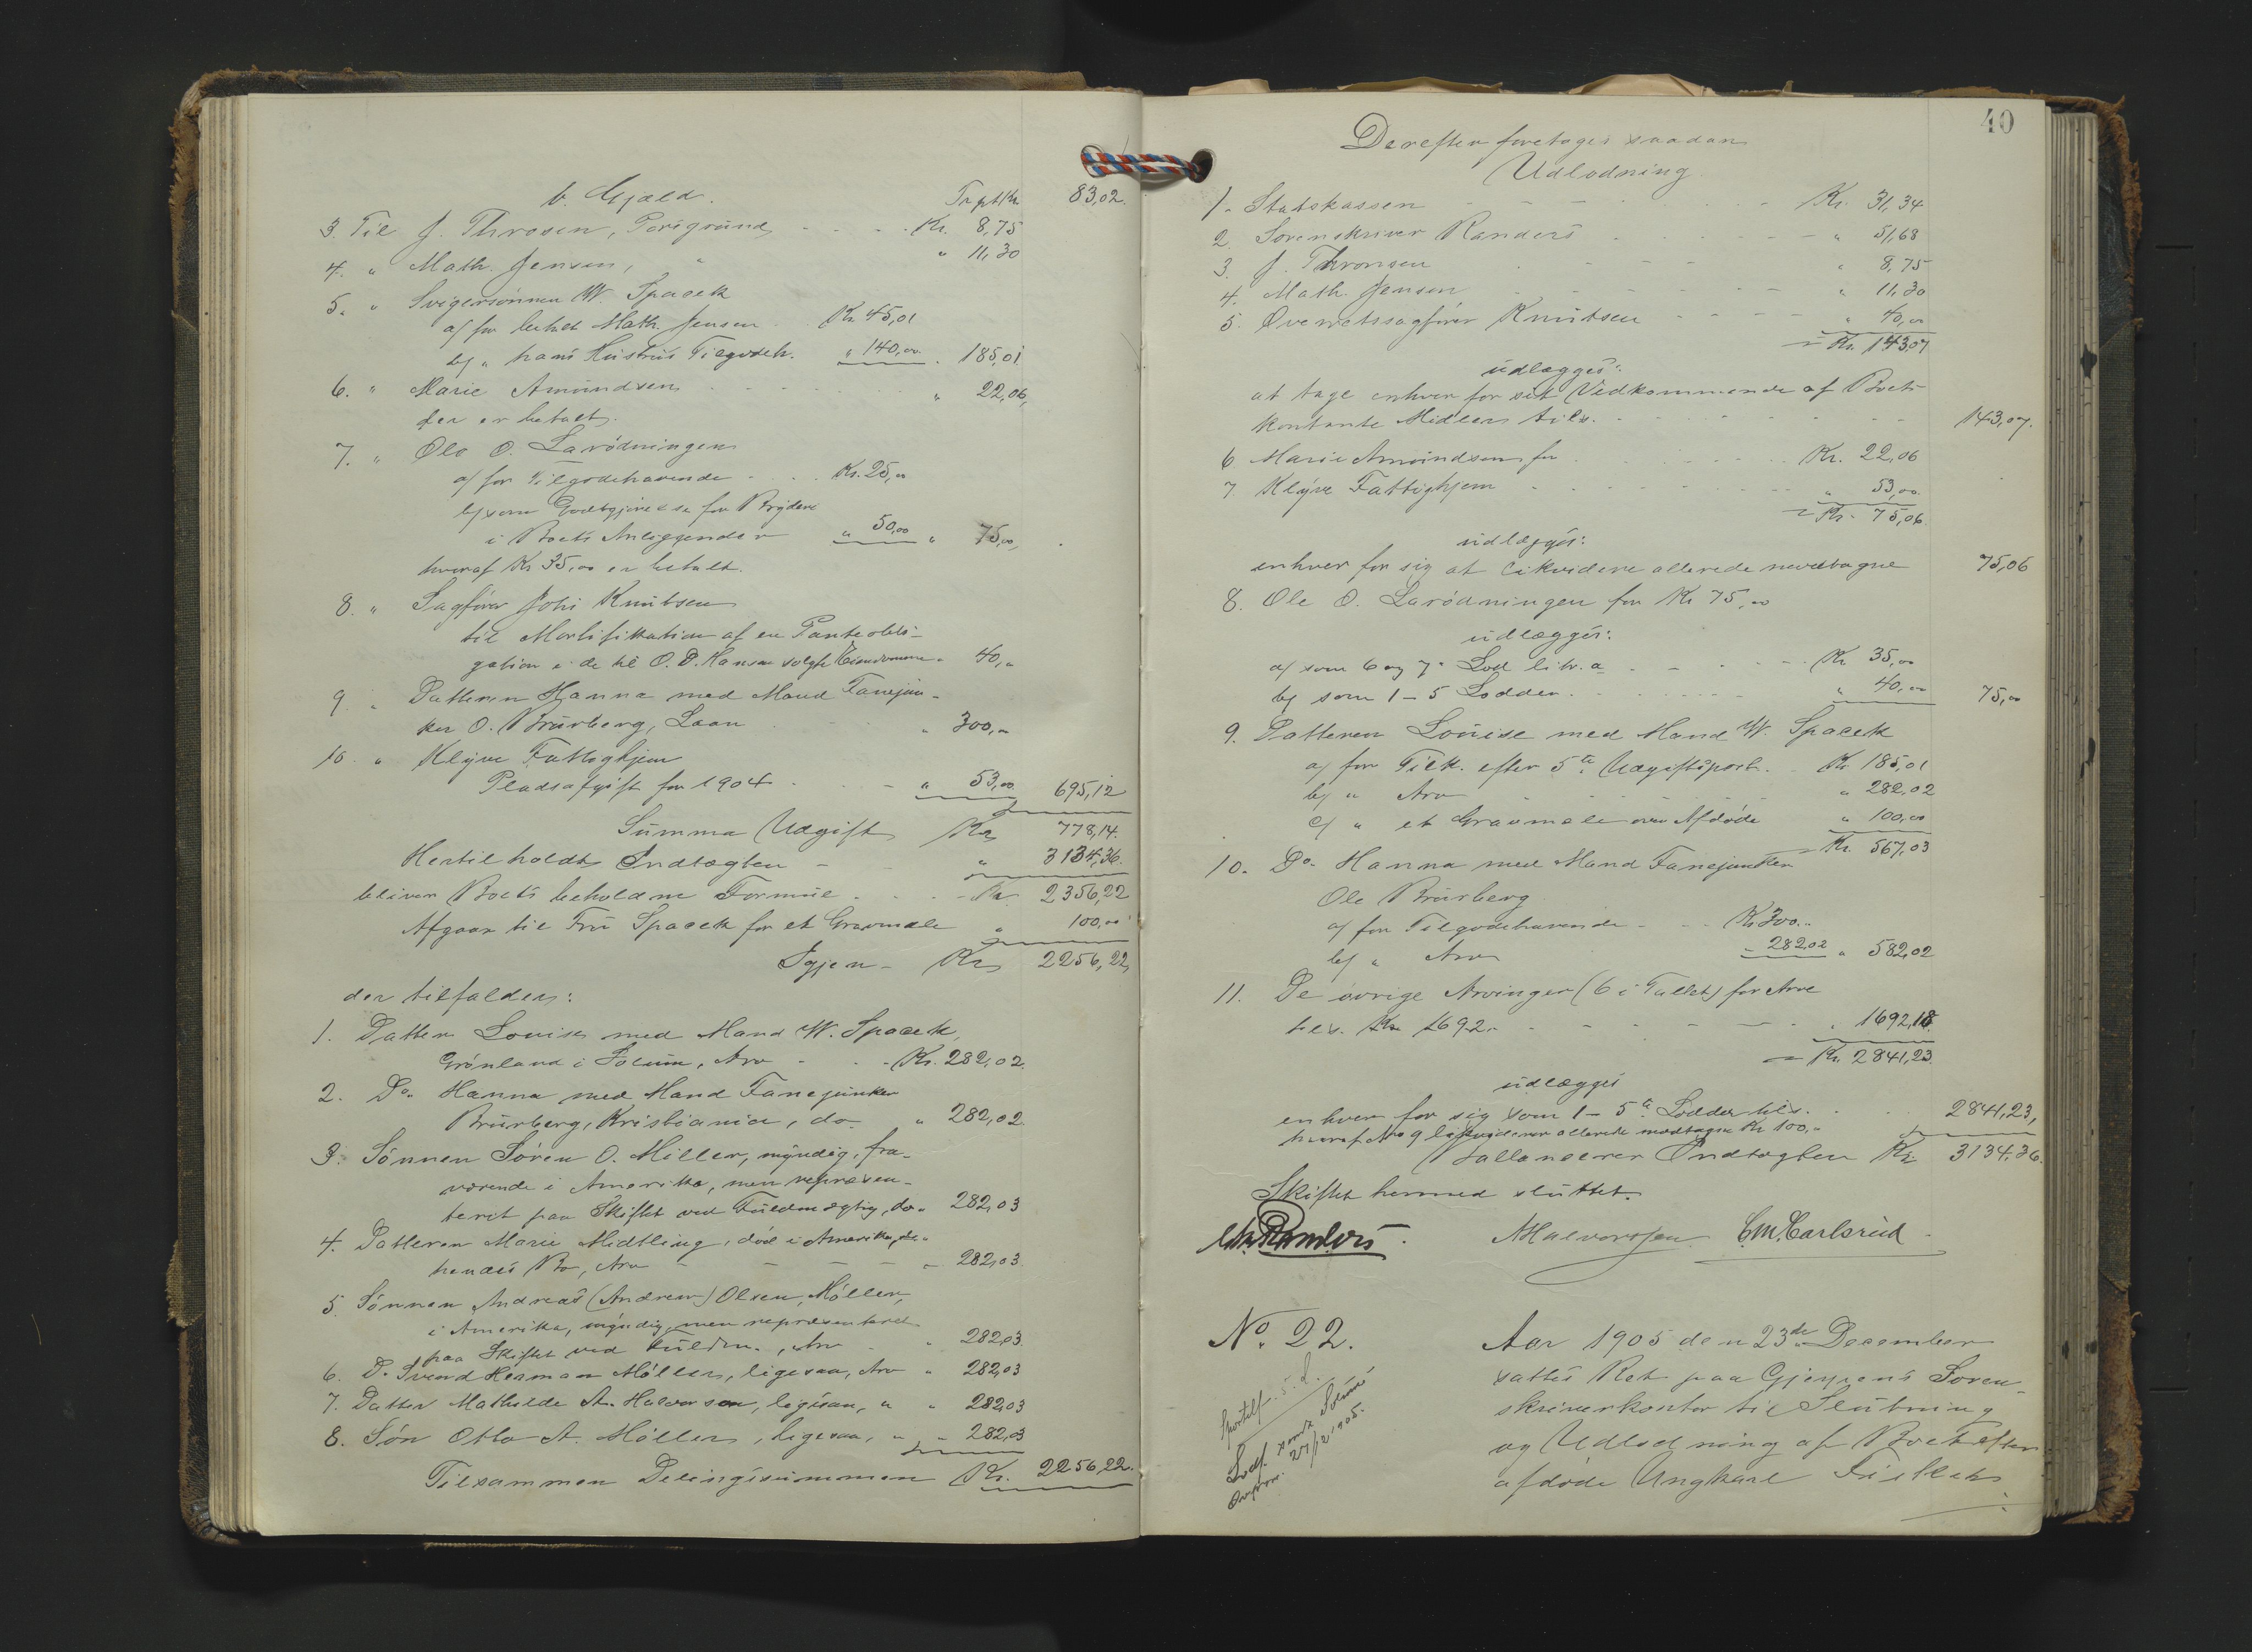 b. Gjæld. Trpt Kr. 83,02.
3. Til J. Thronsen, Porsgrund, - - - - Kr. 8,75
4. " Math. Jensen, " " 11,30
5. " Svigersønnen W. Spacek
a/ for betalt Math. Jensen Kr. 45,01
b/ " hans Hustrus Tilgodeh. " 140,00. " 185,01.
6. " Marie Amundsen - - - - " 22,06,
der er betalt.
7. " Ole O. Larødningen
a/ for Tilgodehavende - - - Kr. 25,00
b/ som Godtgjørelse for Bryderi
i Boets Anliggender " 50,00 " 75,00,
hvoraf Kr 35,00 er betalt.
8. " Sagfører Joh. Knudsen
til Mortifikation af en Panteobli-
gation i de til O. P. Hansen solgte Eiendomme " 40,00
9 " Datteren Hanna med Mand Fanejun-
ker O. Brurberg, Laan " 300,00
10. " Klyve Fattighjem
Pladsafgift for 1904 - - - " 53,00. 695,12
Summa Udgift Kr 778,14.
Hertil holdt Indtægten - " 3134,36.
bliver Boets beholdne Formue - - - Kr. 2356,22
Afgaar til Fru Spacek for et Gravmæle " 100,00
Igjen - Kr 2256,22,
der tilfalder:
1. Datter Louise med Mand W. Spacek,
Grønland i Solum, Arv - - - Kr. 282,02.
2. Do. Hanna med Mand Fanejunker
Brurberg, Kristiania, do - " 282,02.
3. Sønnen Søren O. Miller, myndig, fra-
værende i Amerika, men repræsen-
teret paa Skiftet ved Fuldmægtig, do " 282,03
4. Datteren Marie Midtling, død i Amerika, de.
hendes Bo, Arv - - - - " 282,03.
5 Sønnen Andreas (Andrew) Olsen Møller,
i Amerika, myndig, men repræsenteret
paa Skiftet ved Fuldm., Arv " 282,03.
6. Do. Svend Herman Møller, ligesaa, Arv " 282,03
7. Datter Mathilde A. Halvorsen, ligesaa, " " 282,03
8. Søn Otto A. Møller, ligesaa, " " 282,03
Tilsammen Delingssummen Kr. 2256,22.
40
Derefter foretoges saadan
Udlodning
1. Statskassen - - - - - Kr. 31,34
2. Sorenskriver Randers - - - - " 51,68
3. J. Thronsen - - - - " 8,75
4. Math. Jensen - - - - " 11,30
5. Overretssagfører Knudsen - - - - " 40,00
= Kr. 143,07
udlægges:
at tage enhver for sit Vedkommende af Boets
kontante Midler tils. - - - - - 143,07.
6 Marie Amundsen for - - - - Kr. 22,06
7. Klyve Fattighjem - - - - " 53,00.
= Kr. 75,06
udlægges:
enhver for sig at likvidere allerede modtagne 75,06
8. Ole O. Larødningen for Kr 75,00
udlægges:
a/ som 6 og 7. Lod litr. a - - - - Kr 35,00
b/ som 1-5 Lodder. - - - - " 40,00 75,00
9. Datteren Louise med Mand W. Spacek
a/ for Tilk. efter 5te Udgiftspost. Kr 185,01
b/ " Arv - - - " 282,02
c/ " et Gravmæle over Afdøde " 100,00
= Kr. 567,03
10. Do. Hanna med Mand Fanejunker
Ole Brurberg
a/ for Tilgodehavende - - - Kr 300..
b/ " Arv " 282,02 " 582,02
11. De øvrige Arvinger (6 i Tallet) for Arv
tils. Kr 1692. - - - - " 1692,18.
= Kr. 2841,23.
udlægges
enhver for sig som 1-5te Lodder tils. - - 2841,23,
hvoraf No 9 likviderer allerede modtagne Kr 100,-
Ballancerer Indtægten Kr. 3134,36.
Skiftet hermed sluttet.
Chr Randers. NHalvorsen C.M. Carlsrud
No. 22.
Aar 1905 den 23de December
sattes Ret paa Gjerpens Soren-
skriverkontor til Slutning
og Udlodning af Boet efter
afdøde Ungkarl
27/12 1905.